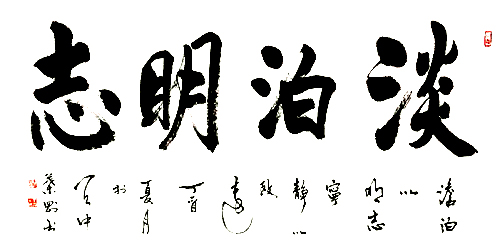 淡泊明志
澹泊
以
明志
寧
靜以
致
遠
丁酉
夏月
於